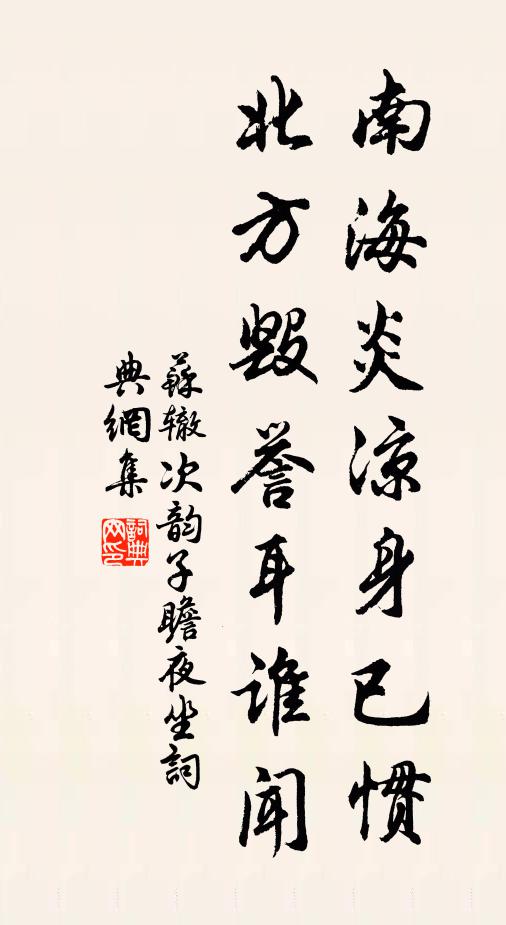 南海炎凉身已惯
北方毁誉耳谁闻
蘇辙次韵子瞻夜坐詞
典網集
詞典网印